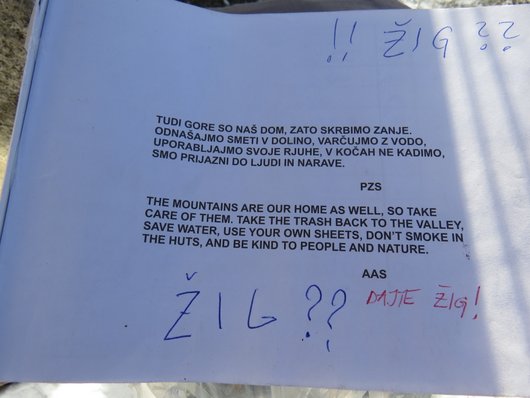 !! ŽIG ??
TUDI GORE SO NAŠ DOM, ZATO SKRBIMO ZANJE.
ODNAŠAJMO SMETI V DOLINO, VARČUJMO Z VODO,
UPORABLJAJMO SVOJE RJUHE, V KOČAH NE KADIMO,
SMO PRIJAZNI DO LJUDI IN NARAVE.
PZS
THE MOUNTAINS ARE OUR HOME AS WELL, SO TAKE
CARE OF THEM. TAKE THE TRASH BACK TO THE VALLEY,
SAVE WATER, USE YOUR OWN SHEETS, DON'T SMOKE IN
THE HUTS, AND BE KIND TO PEOPLE AND NATURE.
AAS
ŽIG ??
DAJTE ŽIG!